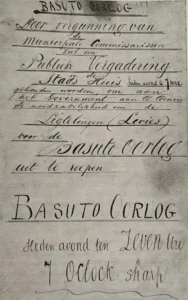 BASUTO OORLOG !!!
Door vergunning van
de
Municipale Commissarissen
zal een
Publiek Vergadering
in de
Stads Huis heden avond te 7 ure
gehouden worden, om aan
het Government aan te toonen
de noodzakelijkheid om de
Ligtelingen (Levies)
voor de
Basuto Oorlog
uit te roepen.
BASUTO OORLOG
Heden avond ten ZEVEN Ure
7 OClock sharp